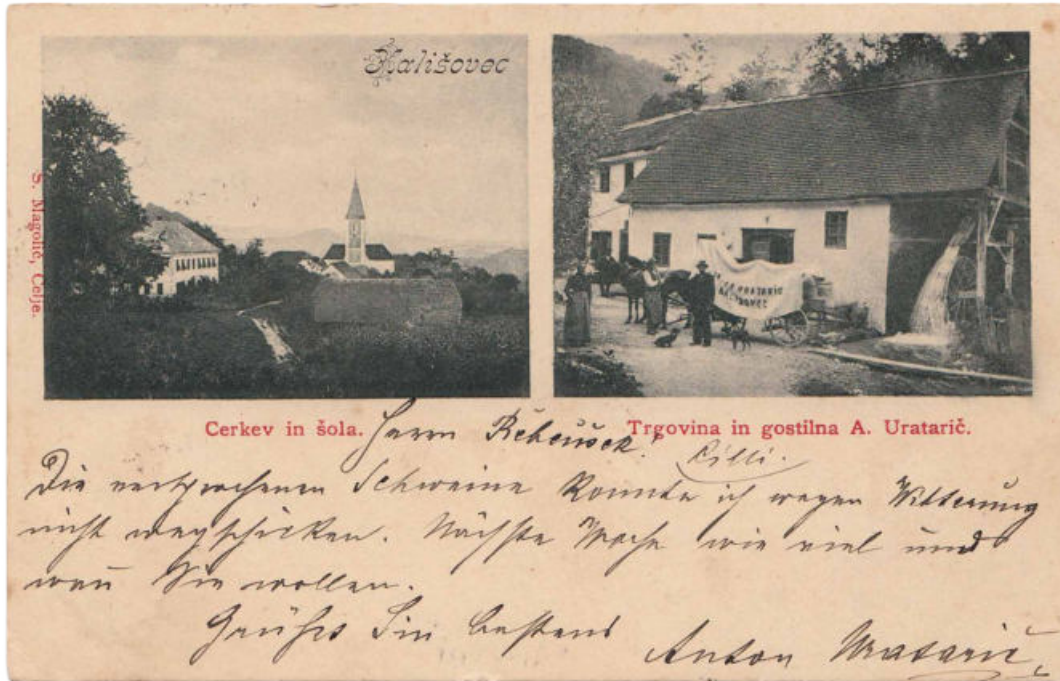 Kališovec
S. Magolič, Celje.
A. URATARIC
Cerkev in šola.
Trgovina in gostilna A. Uratarič.
Herrn
Cilli.
Die versprochenen Schweine konnte ich wegen Witterung
nicht wegschicken. Nächste Woche wie viel und
wan Sie wollen.
Grüßt Sie bestens
Anton Uratarič